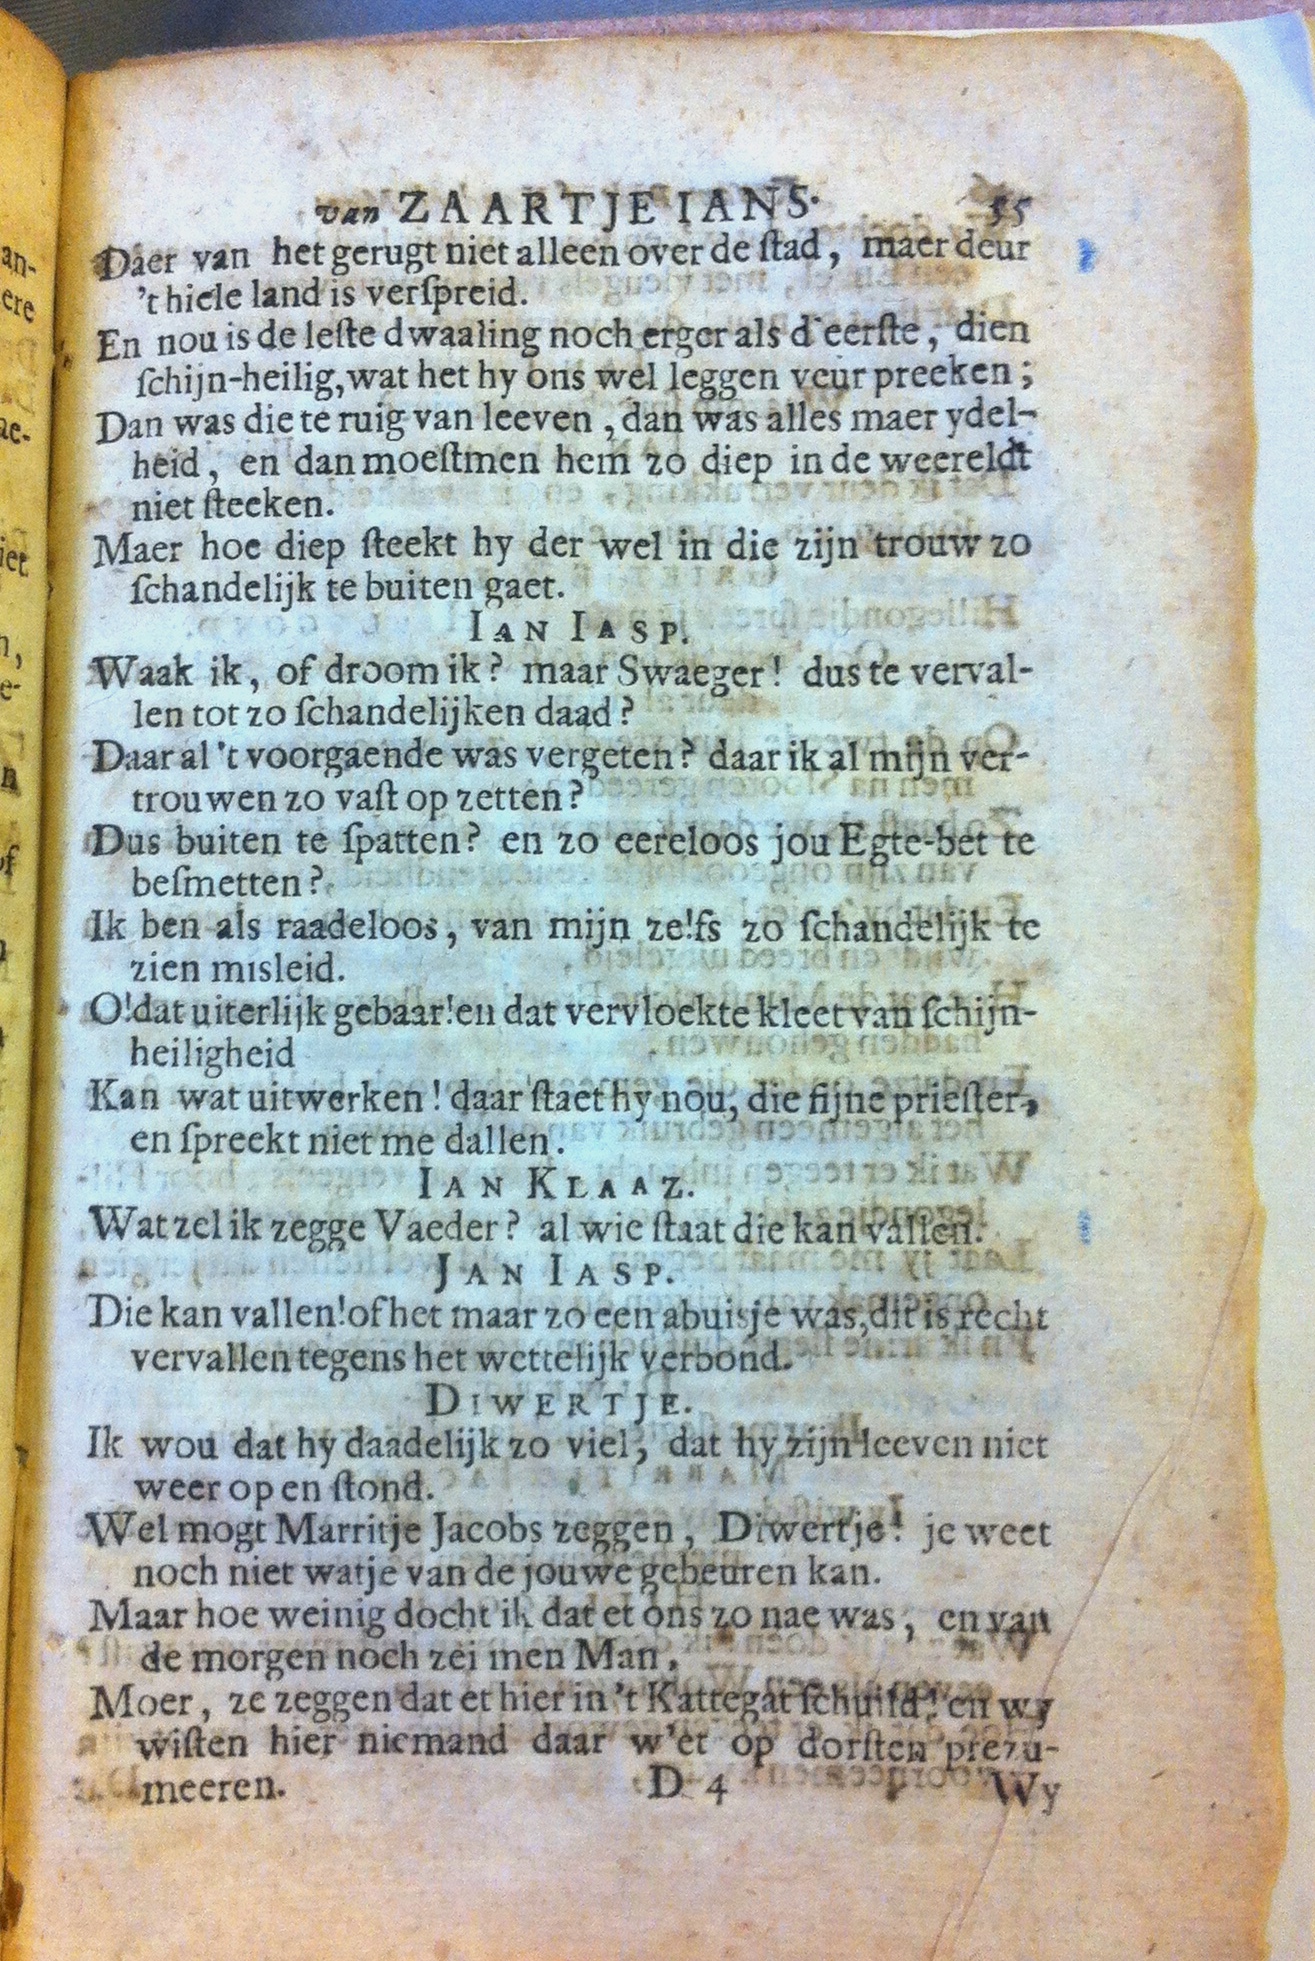 van ZAARTJE IANS. 55
Daer van het gerugt niet alleen over de ſtad, maer deur
't hiele land is verſpreid.
En nou is de leſte dwaaling noch erger als d'eerſte, dien
ſchijn-heilig, wat het hy ons wel leggen veur preeken;
Dan was die te ruig van leeven, dan was alles maer ydel-
heid, en dan moeſtmen hem zo diep in de weereldt
niet ſteeken.
Maer hoe diep ſteekt hy der wel in die zijn trouw zo
ſchandelijk te buiten gaet.
IAN IASP.
Waak ik, of droom ik? maar Swaeger! dus te verval-
len tot zo ſchandelijken daad?
Daar al 't voorgaende was vergeten? daar ik al mijn ver-
trouwen zo vaſt op zetten?
Dus buiten te ſpatten? en zo eereloos jou Egte-bet te
beſmetten?
Ik ben als raadeloos, van mijn zelfs zo ſchandelijk te
zien misleid.
O! dat uiterlijk gebaar! en dat vervloekte kleet van ſchijn-
heiligheid
Kan wat uitwerken! daar ſtaet hy nou, die fijne prieſter,
en ſpreekt niet me dallen.
IAN KLAAZ.
Wat zel ik zegge Vaeder? al wie ſtaat die kan vallen.
JAN IASP.
Die kan vallen! of het maar zo een abuisje was, dit is recht
vervallen tegens het wettelijk verbond.
DIWERTJE.
Ik wou dat hy daadelijk zo viel, dat hy zijn leeven niet
weer op en ſtond.
Wel mogt Marritje Jacobs zeggen, Diwertje! je weet
noch niet watje van de jouwe gebeuren kan.
Maar hoe weinig docht ik dat et ons zo nae was, en van
de morgen noch zei men Man,
Moer, ze zeggen dat et hier in 't Kattegat ſchuild! en wy
wiſten hier niemand daar w'et op dorſten prezu-
meeren. D 4 Wy